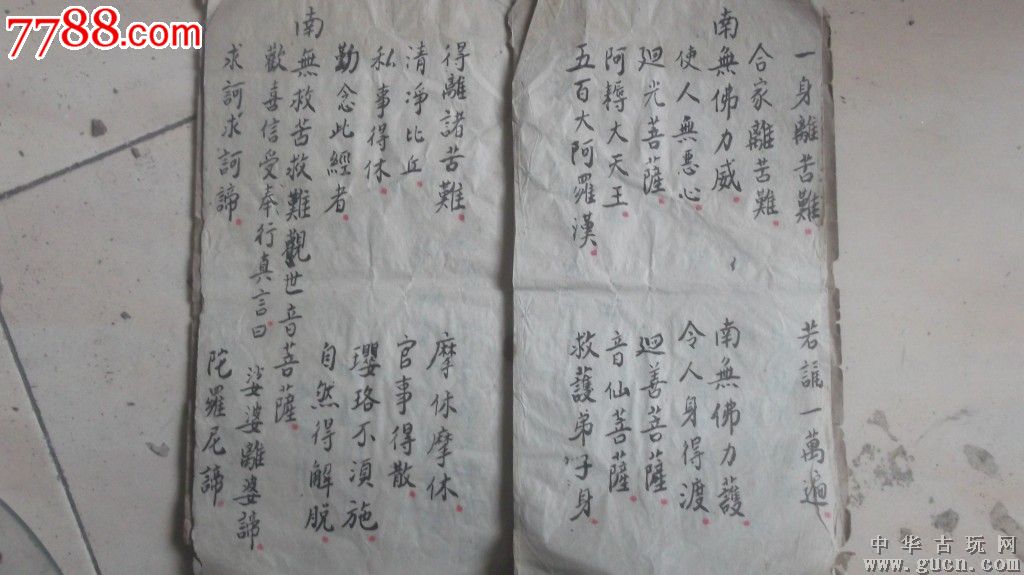 一身離苦難 若誦一萬遍
合家離苦難
南無佛力威 南無佛力護
使人無悪心 令人身得渡
廻光菩薩 廻善菩薩
阿耨大天王 音仙菩薩
五百大阿羅漢 救護弟子身
得離諸苦難 摩休摩休
清淨比丘 官事得散
私事得休 瓔珞不須施
勤念此經者 自然得解脱
南無救苦救難觀世音菩薩
歡喜信受奉行真言曰 娑婆離婆諦
求訶求訶諦 陀羅尼諦
7788.com
中华古玩网
www.gucn.com